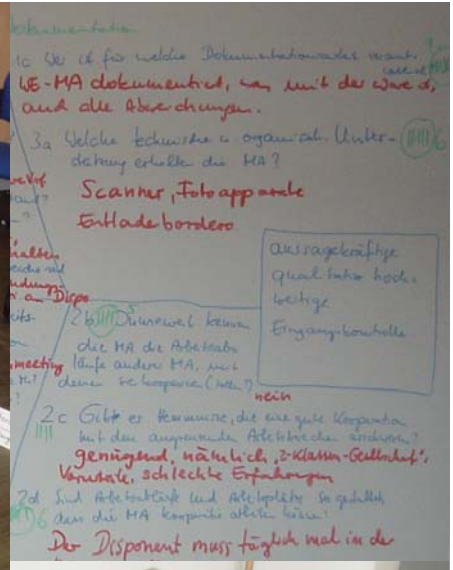 1c Wer ist für welche Dokumentation
WE-MA dokumentiert, was mit der Ware
und alle Abweichungen.
3a Welche technische u. organisat. Unter-
stützung erhalten die MA?
6
Scanner, Fotoapparate
Entladebordero
aussagekräftige
qualitativ hoch-
wertige
Eingangskontrolle
Dispo
2b Inwieweit kennen
die MA die Arbeitsab-
läufe anderer MA, mit
denen sie kooperieren (sollen)?
meeting
nein
2c Gibt es Hemmnisse, die eine gute Kooperation
mit den angrenzenden Arbeitsbereichen erschweren?
genügend, nämlich "2-Klassen-Gesellschaft",
Vorurteile, schlechte Erfahrungen
2d Sind Arbeitsabläufe und Arbeitsplätze so gestaltet
6 dass die MA kooperativ arbeiten können?
Der Disponent muss täglich mal in der